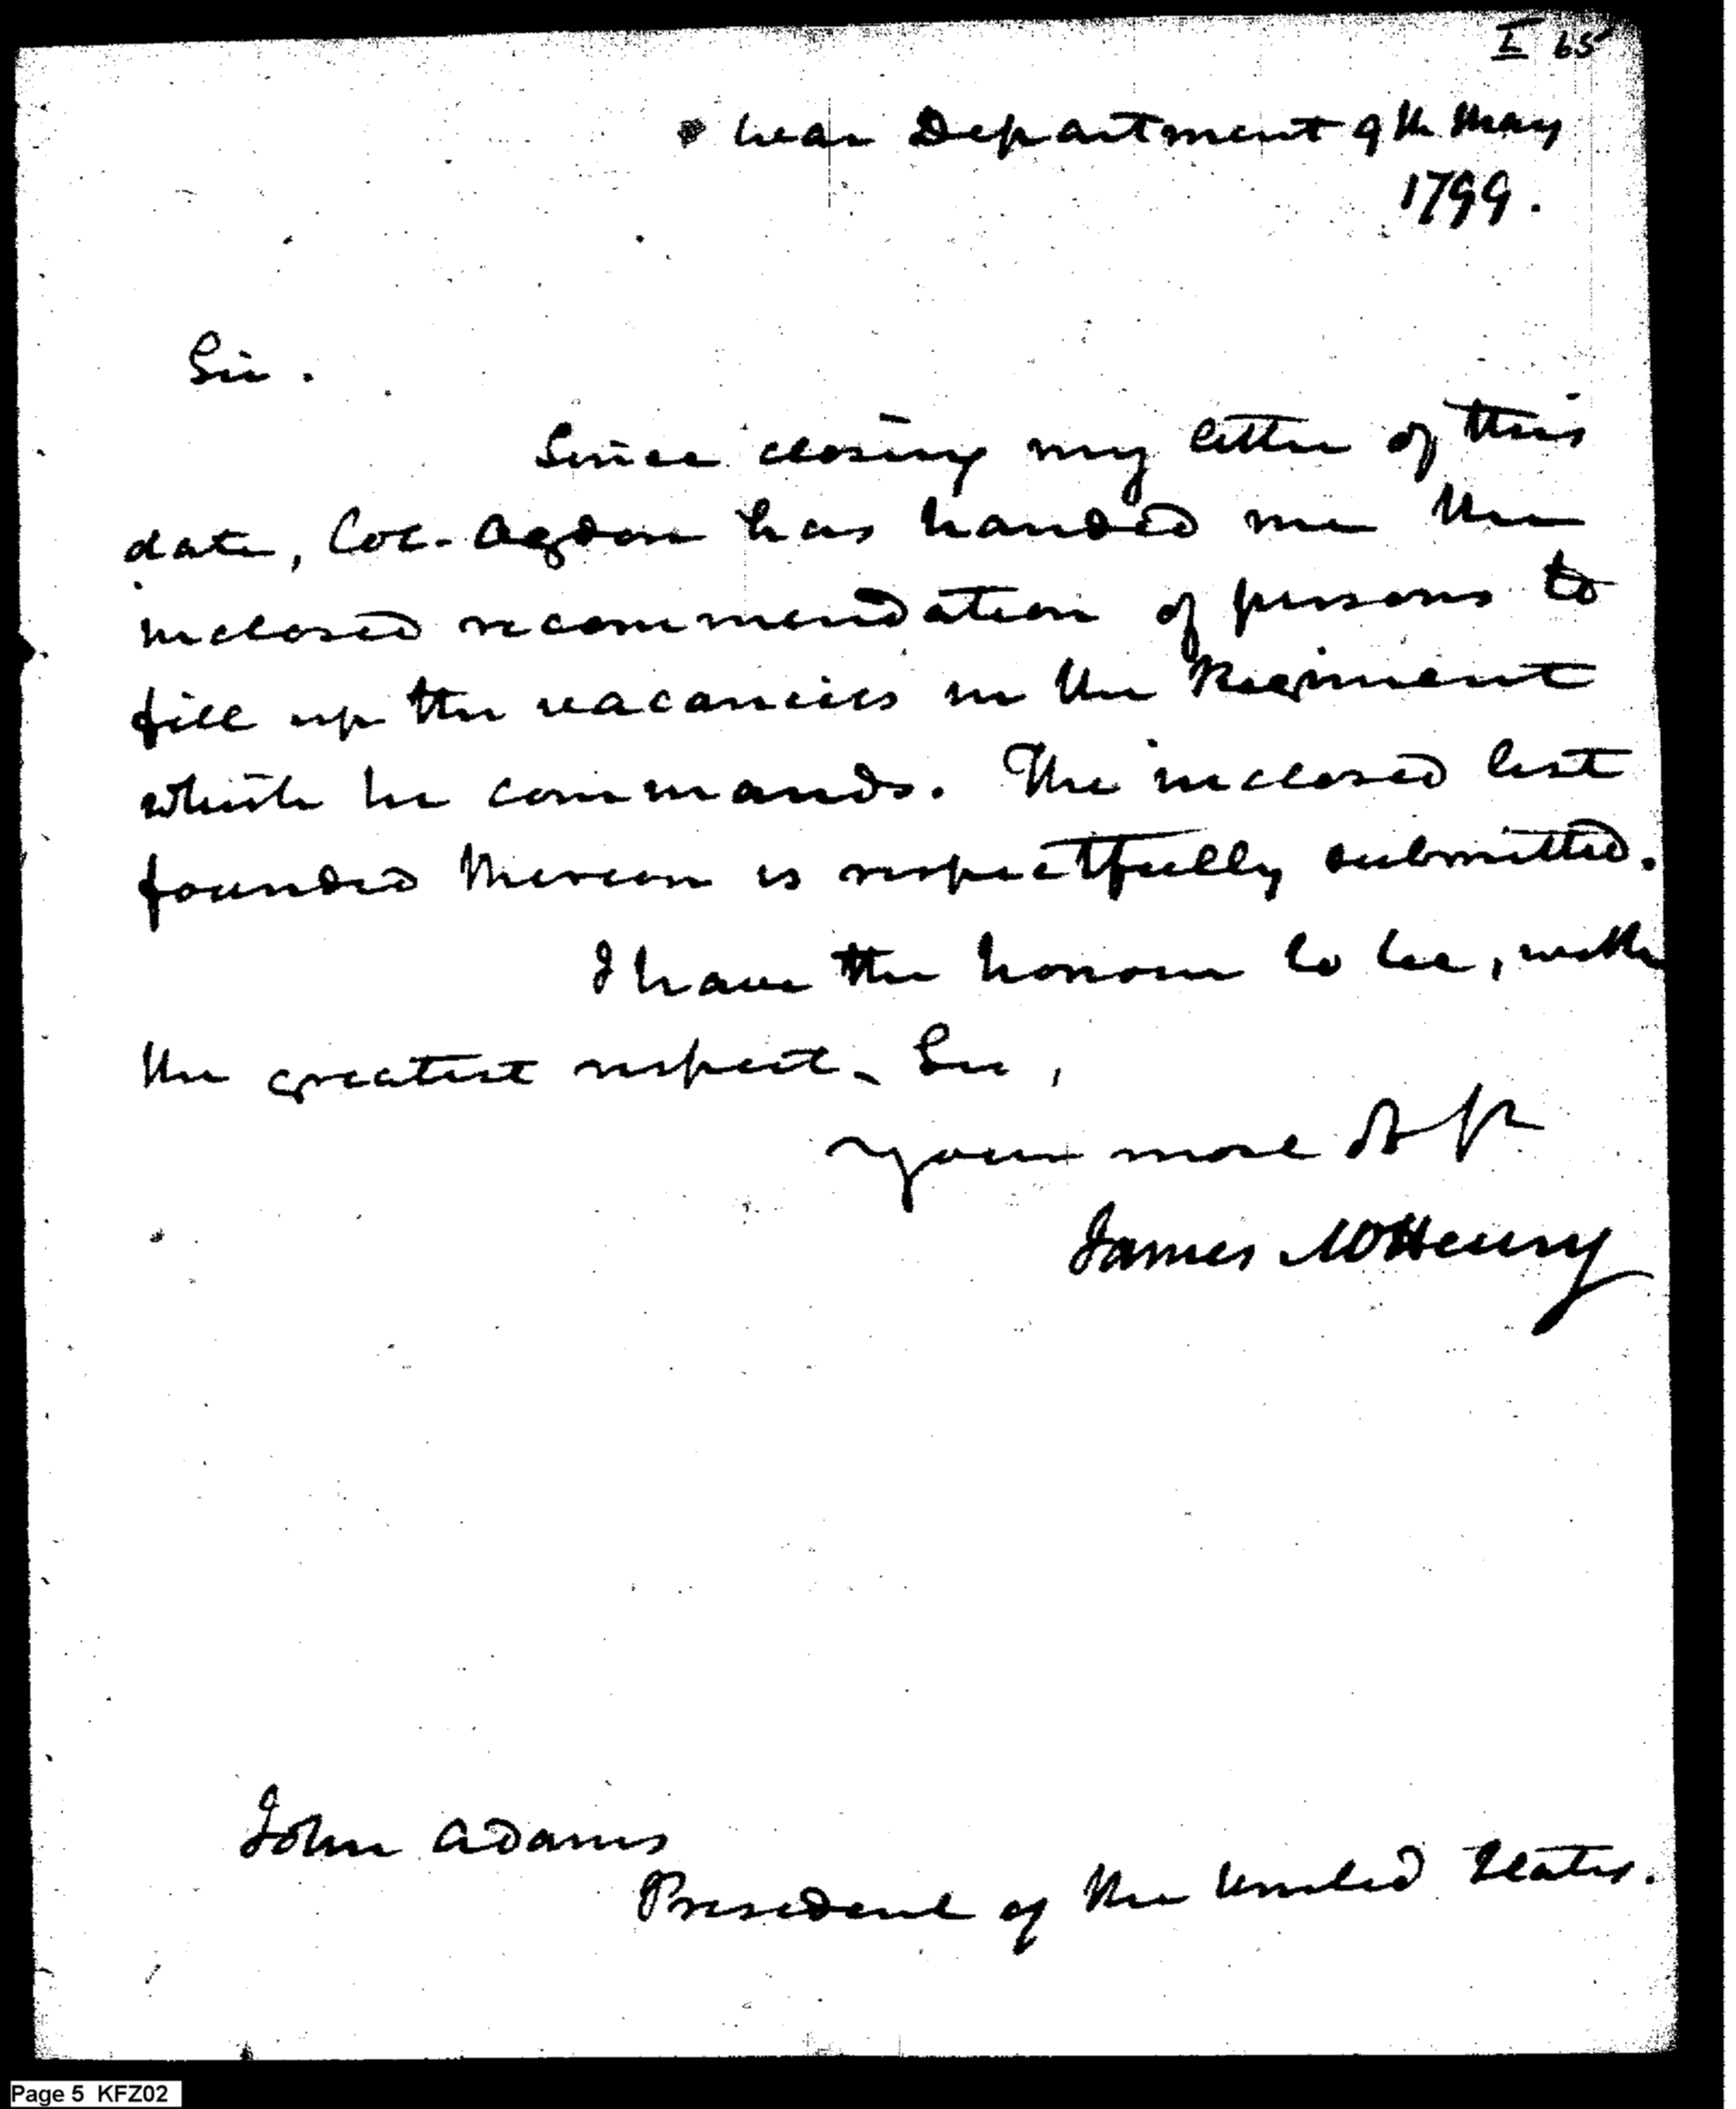 I 65
War Department 9th May
1799.
Sir.
Since closing my letter of this
date, Col. Ogden has handed me the
inclosed recommendation of persons to
fill up the vacancies in the Regiment
which he commands. The inclosed list
founded thereon is respectfully submitted.
I have the honour to be, with
the greatest respect, Sir,
Your most
James McHenry
John Adams
President of the United States.
Page 5 KFZ02